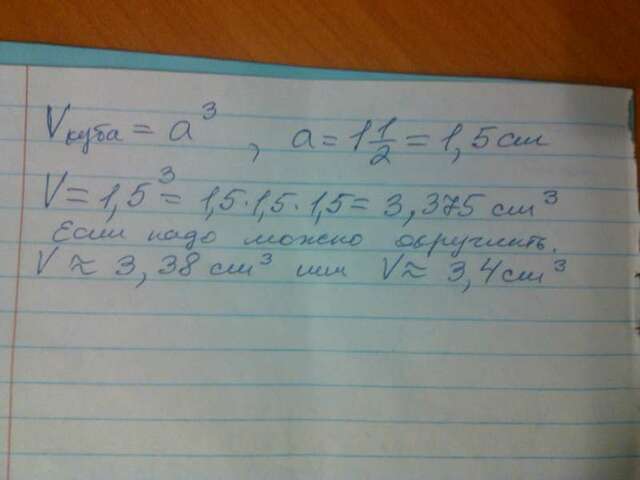 Vкуба = a³, a = 1 1/2 = 1,5 см
V = 1,5³ = 1,5·1,5·1,5 = 3,375 см³
Если надо можно округлить.
V ≈ 3,38 см³ или V ≈ 3,4 см³